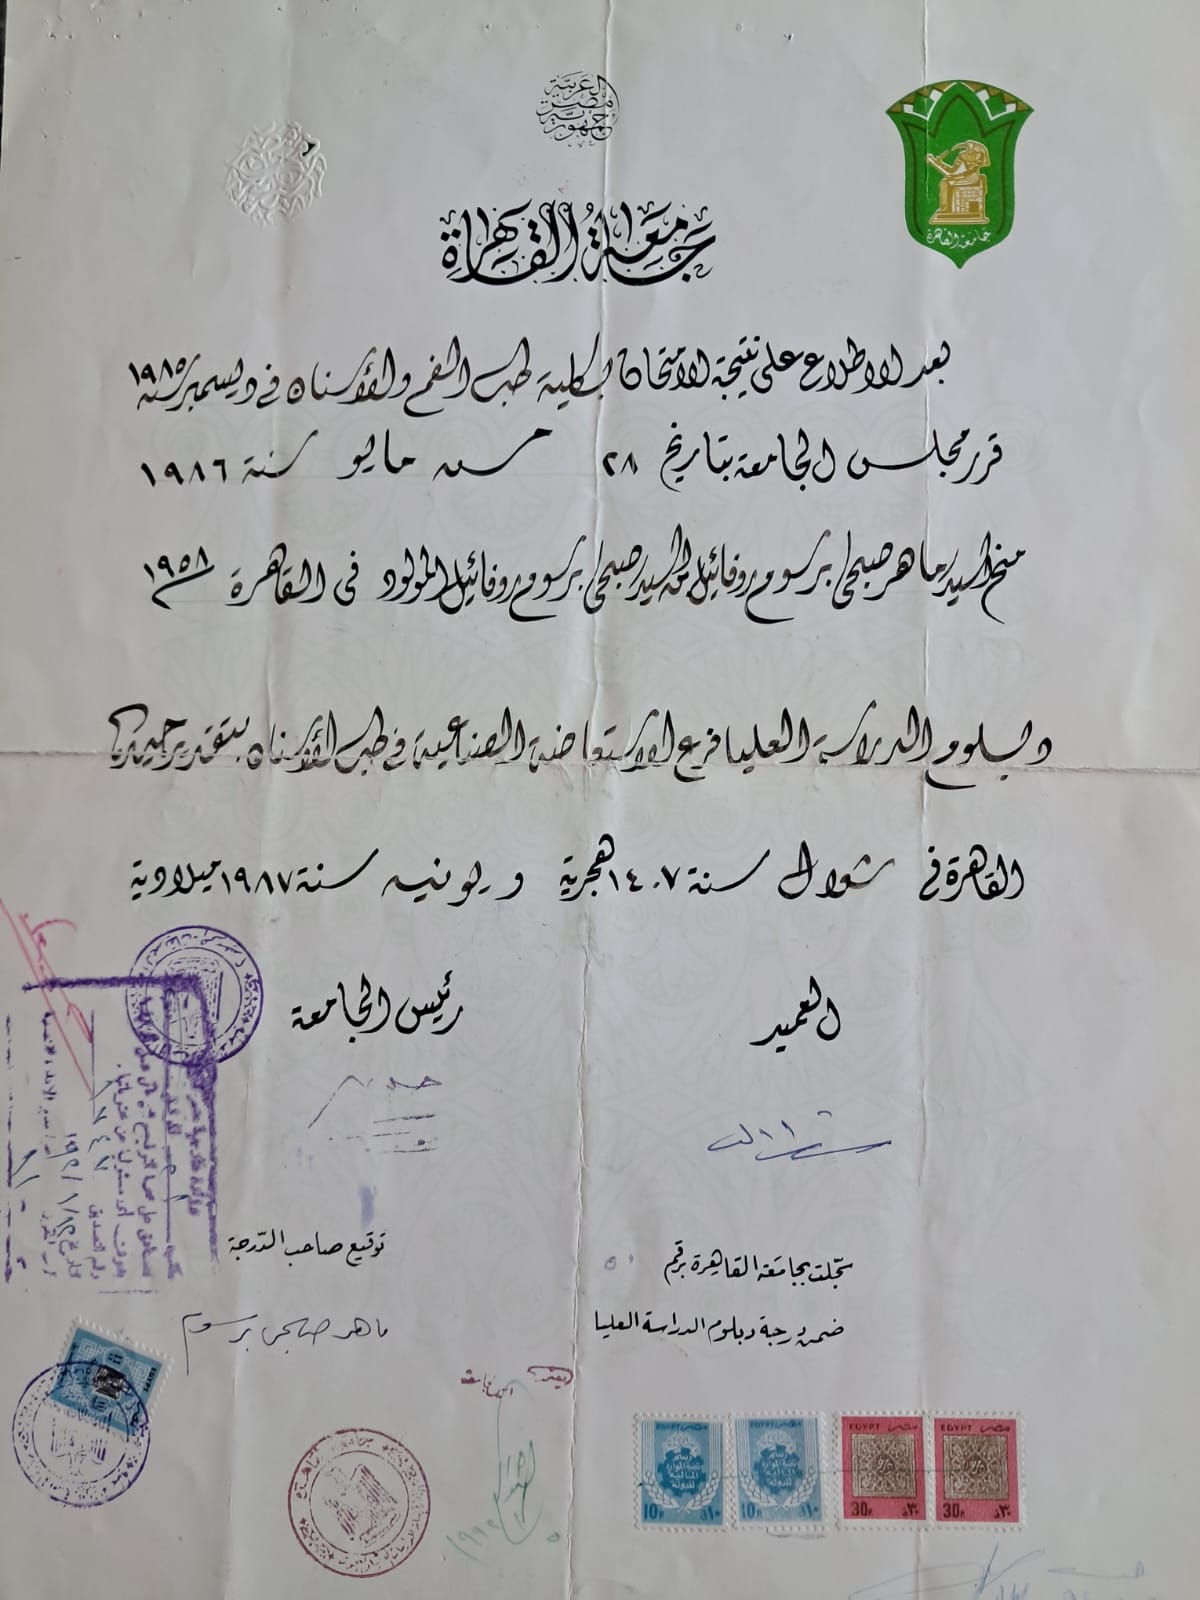 جمهورية مصر العربية
جامعة القاهرة
جامعة القاهرة
بعد الاطلاع على نتيجة الامتحان بكلية طب الفم والأسنان في ديسمبر سنة ١٩٨٥
قرر مجلس الجامعة بتاريخ ٢٨ من مايو سنة ١٩٨٦
منح السيد ماهر صبحى برسوم روفائيل ابن السيد صبحى برسوم روفائيل المولود في القاهرة ١٩٥٨
دبلوم الدراسة العليا فرع الاستعاضة الصناعية في طب الأسنان بتقدير جيد
القاهرة في شوال سنة ١٤٠٧ هجرية ويونيه سنة ١٩٨٧ ميلادية
العميد
رئيس الجامعة
سجلت بجامعة القاهرة برقم
ضمن درجة دبلوم الدراسة العليا
توقيع صاحب الدرجة
ماهر صبحى برسوم
EGYPT مصر
10P ١٠
EGYPT مصر
10P ١٠
EGYPT مصر
30P ٣٠
EGYPT مصر
30P ٣٠